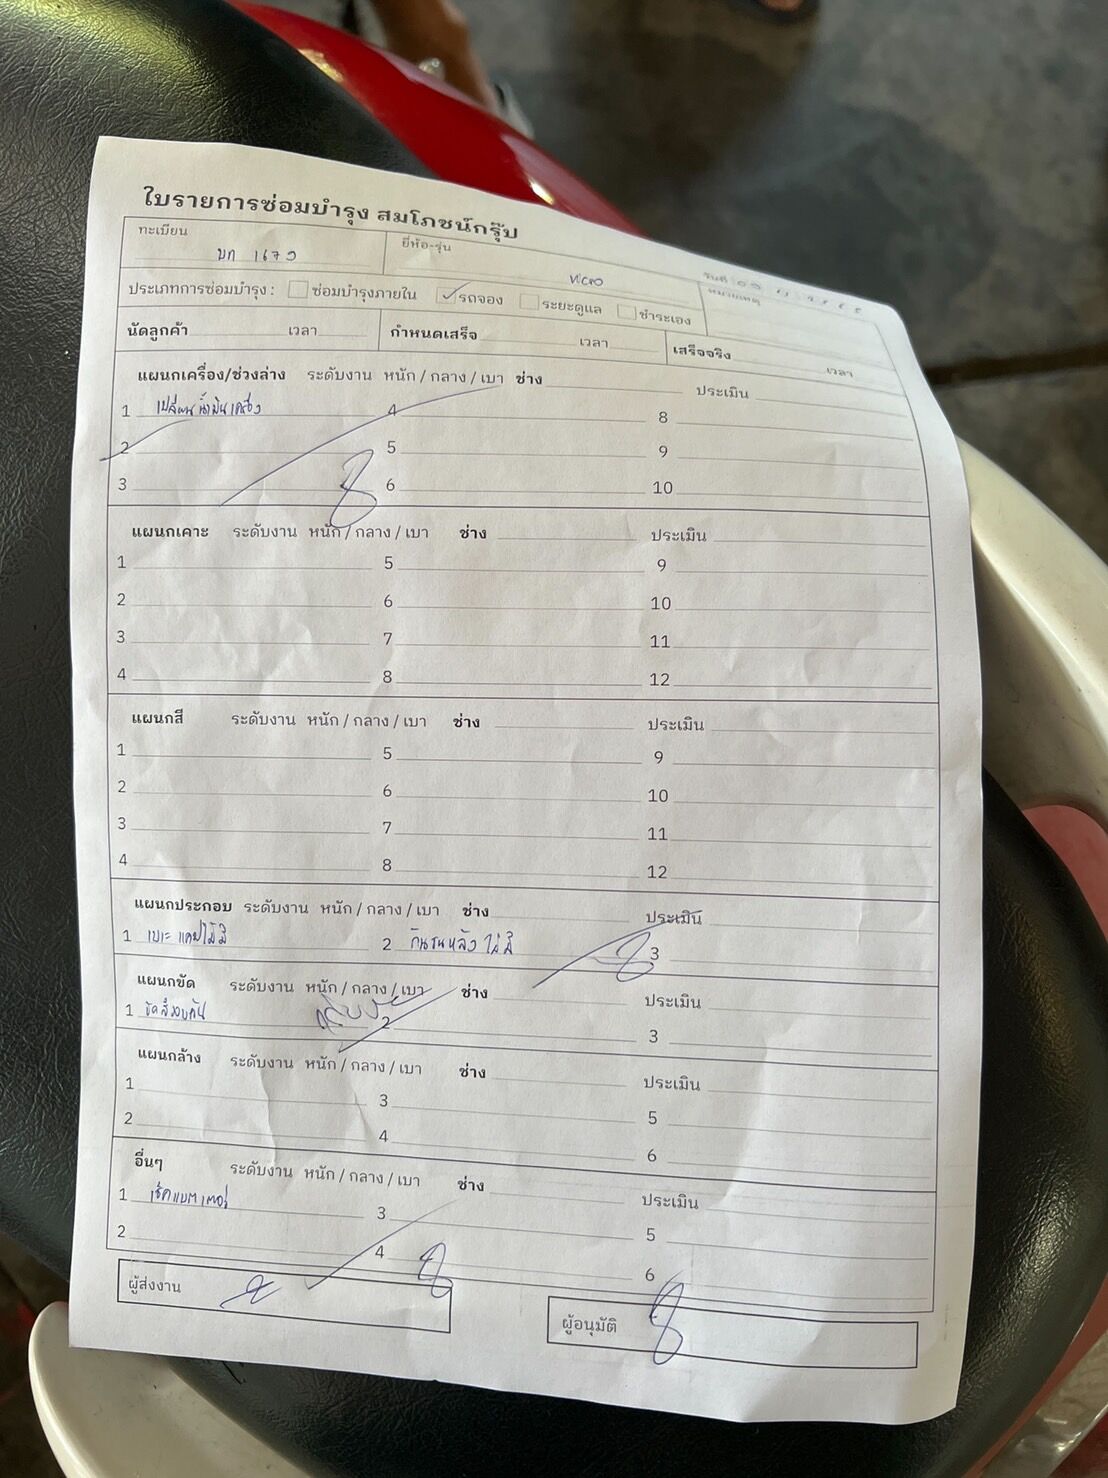 ใบรายการซ่อมบำรุง สมโภชน์กรุ๊ป
ทะเบียน บท 1679 ยี่ห้อ-รุ่น VIGO
หมายเหตุ
ประเภทการซ่อมบำรุง : ซ่อมบำรุงภายใน รถจอง ระยะดูแล ชำระเอง
นัดลูกค้า เวลา กำหนดเสร็จ เวลา เสร็จจริง เวลา
แผนกเครื่อง/ช่วงล่าง ระดับงาน หนัก / กลาง / เบา ช่าง ประเมิน
1 เปลี่ยนน้ำมันเครื่อง 4 8
2 5 9
3 6 10
แผนกเคาะ ระดับงาน หนัก / กลาง / เบา ช่าง ประเมิน
1 5 9
2 6 10
3 7 11
4 8 12
แผนกสี ระดับงาน หนัก / กลาง / เบา ช่าง ประเมิน
1 5 9
2 6 10
3 7 11
4 8 12
แผนกประกอบ ระดับงาน หนัก / กลาง / เบา ช่าง ประเมิน
1 เบาะแคปไม่มี 2 กันชนหลัง ไม่มี 3
แผนกขัด ระดับงาน หนัก / กลาง / เบา ช่าง ประเมิน
1 ขัดสีรอบคัน 2 3
แผนกล้าง ระดับงาน หนัก / กลาง / เบา ช่าง ประเมิน
1 3 5
2 4 6
อื่นๆ ระดับงาน หนัก / กลาง / เบา ช่าง ประเมิน
1 เช็คแบตเตอรี่ 3 5
2 4 6
ผู้ส่งงาน ผู้อนุมัติ